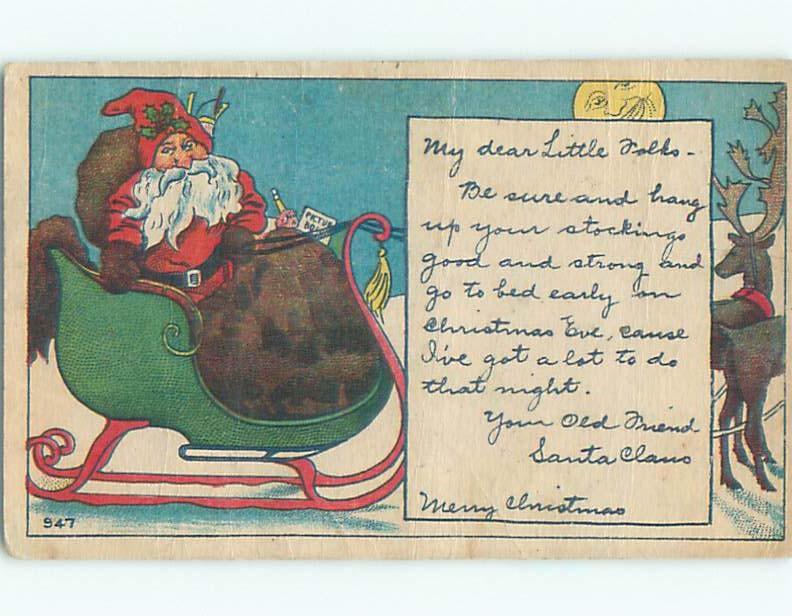 PICTURE
BOOK
My dear Little Folks -
Be sure and hang
up your stockings
good and strong and
go to bed early on
Christmas Eve, cause
I've got a lot to do
that night.
Your Old Friend
Santa Claus
Merry Christmas
947